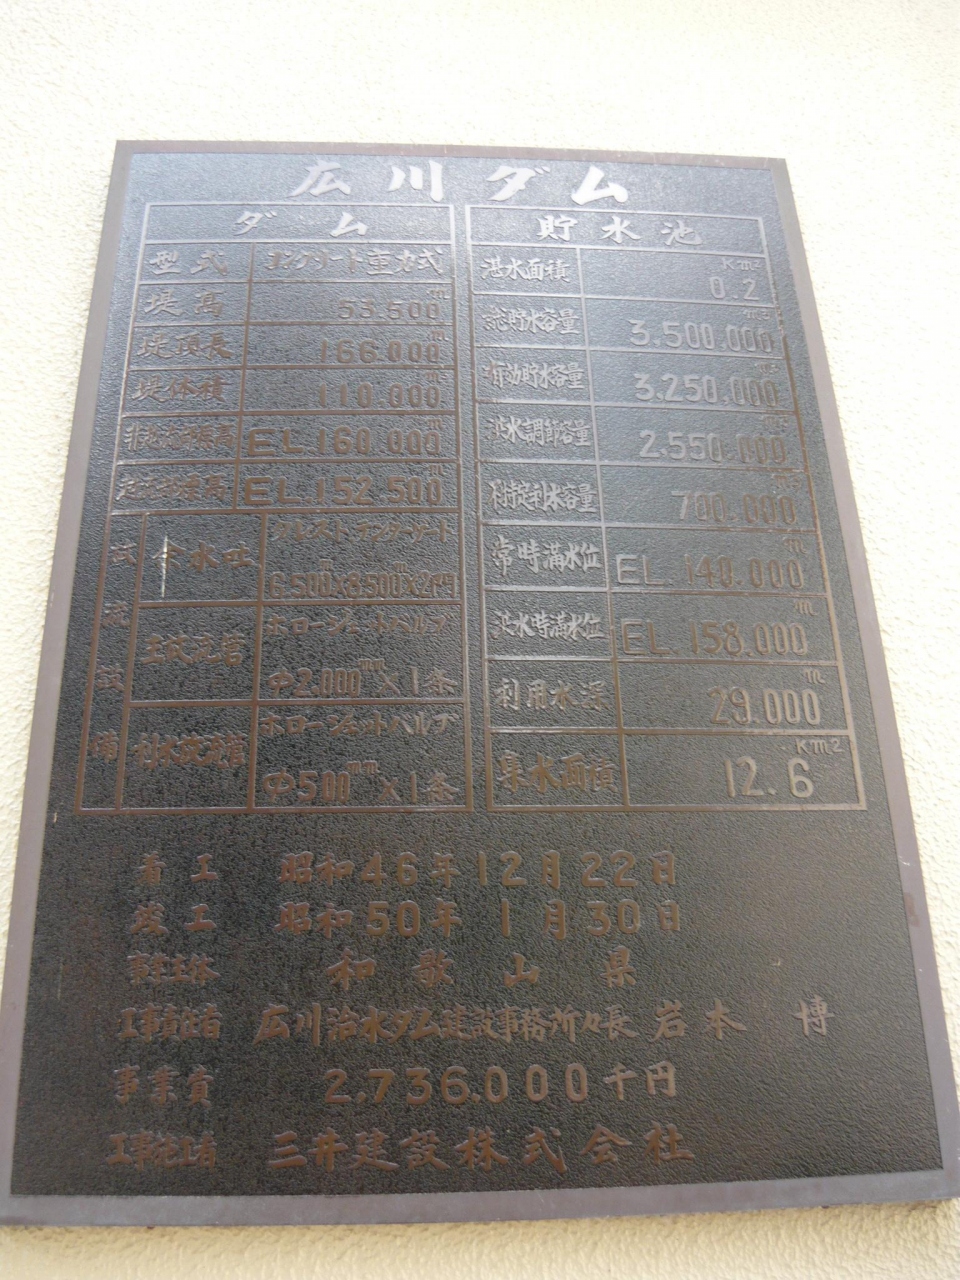 広川ダム
ダム
型式 コンクリート重力式
堤高 53.500m
堤頂長 166.000m
堤体積 110.000m³
非越流部標高 EL.160.000m
越流部標高 EL.152.500m
放流設備
余水吐 クレストラジアルゲート
6.500m×8.500m×2門
主放流管 ホロージェットバルブ
Φ2.000mm×1条
利水放流管 ホロージェットバルブ
Φ500mm×1条
貯水池
湛水面積 0.2Km²
総貯水容量 3.500.000m³
有効貯水容量 3.250.000m³
洪水調節容量 2.550.000m³
不特定利水容量 700.000m³
常時満水位 EL.140.000m
洪水時満水位 EL.158.000m
利用水深 29.000m
集水面積 12.6Km²
着工 昭和46年12月22日
竣工 昭和50年1月30日
事業主体 和歌山県
工事責任者 広川治水ダム建設事務所々長 岩本 博
事業費 2.736.000千円
工事施工者 三井建設株式会社